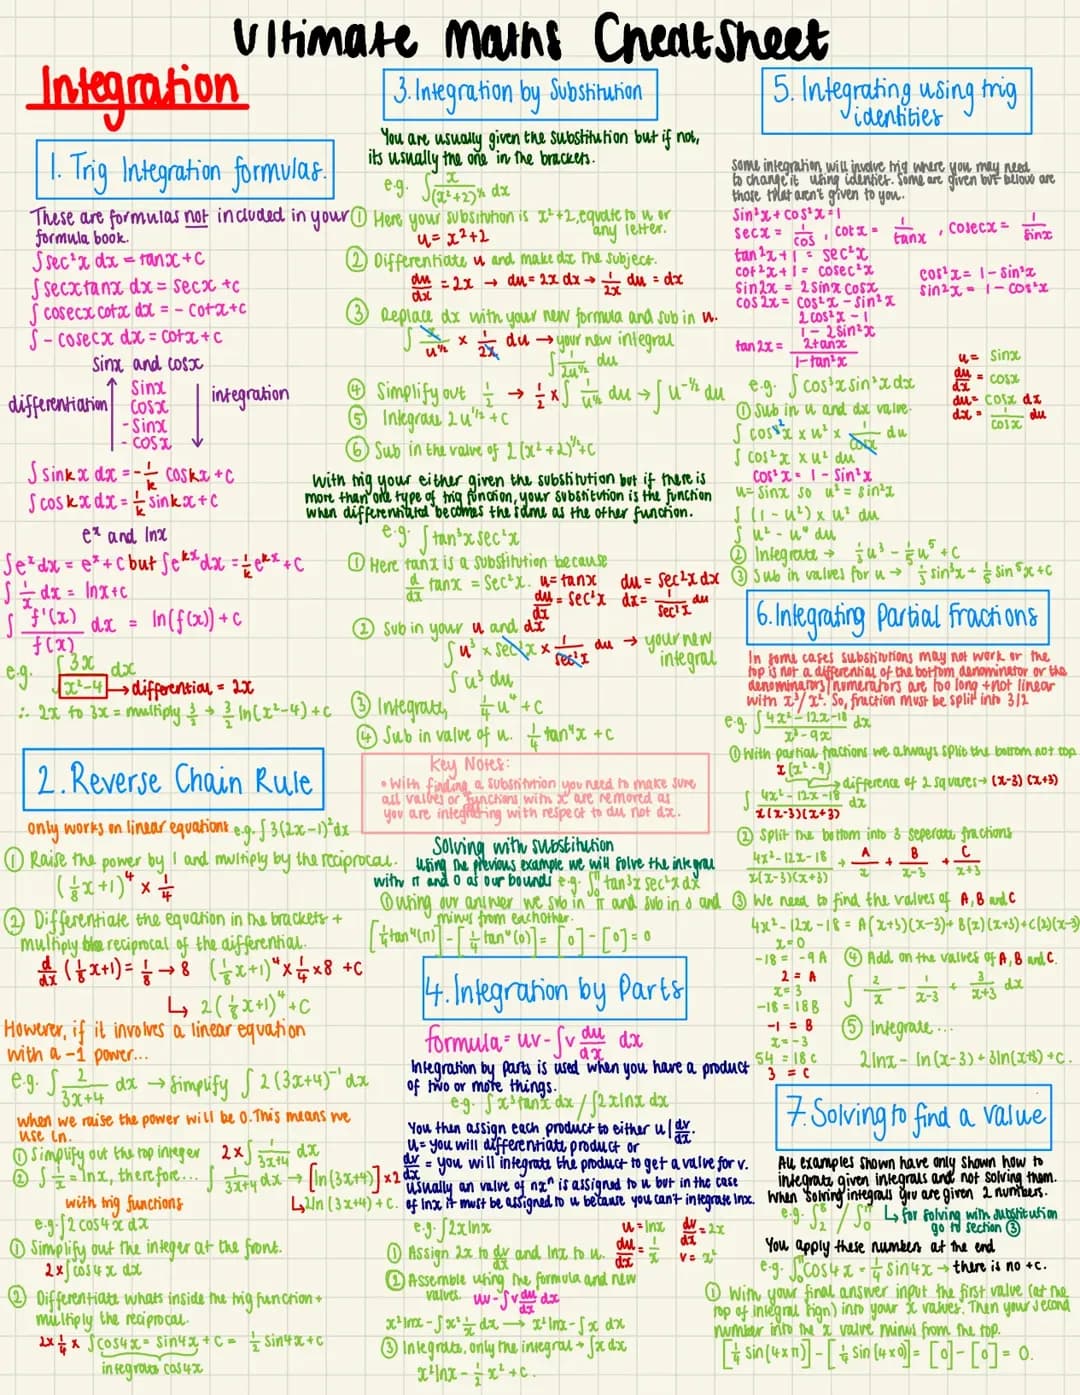 Ultimate Maths Cheatsheet
Integration
1. Trig Integration formulas.
These are formulas not included in your
formula book.
∫sec²x dx = tanx+C
∫secxtanx dx = secx +c
∫cosecx cotx dx = - cotx+c
∫- cosecx dx = cotx + c
Sinx and cosx
differentiation
Sinx
Cosx
- Sinx
- cosx
integration
∫sinkx dx = -1/k coskx +c
∫coskx dx = 1/k sinkx+c
eˣ and lnx
∫eˣdx = eˣ+c but ∫eᵏˣdx = 1/k eᵏˣ+c
∫1/x dx = lnx+c
∫f'(x)/f(x) dx = ln(f(x)) + c
e.g. ∫3x/x²-4 dx
→ differential = 2x
∴ 2x to 3x = multiply 3/2 → 3/2 ln(x²-4)+c
2. Reverse Chain Rule
only works on linear equations e.g. ∫3(2x-1)²dx
① Raise the power by 1 and multiply by the reciprocal.
(1/8x+1)⁴ × 1/4
② Differentiate the equation in the brackets +
multiply the reciprocal of the differential.
d/dx (1/8x+1) = 1/8 → 8 (1/8x+1)⁴ × 1/4 × 8 +c
↳ 2(1/8x+1)⁴ + c
However, if it involves a linear equation
with a -1 power...
e.g. ∫2/3x+4 dx → simplify ∫2(3x+4)⁻¹dx
when we raise the power will be 0. This means we
use ln.
① Simplify out the top integer 2×∫1/3x+4 dx
② ∫1/x = lnx, therefore... ∫1/3x+4 dx → [ln(3x+4)]×2
↳2ln(3x+4)+c.
with trig functions
e.g. ∫2cos4x dx
① Simplify out the integer at the front.
2×∫cos4x dx
② Differentiate whats inside the trig function +
multiply the reciprocal.
2×1/4 × ∫cos4x = sin4x + c = 1/2 sin4x+c
integrate cos4x
3. Integration by Substitution
You are usually given the substitution but if not,
its usually the one in the brackets.
e.g. ∫x/(x²+2)^½ dx
① Here your substitution is x²+2, equate to u or
any letter.
u = x²+2
② Differentiate u and make dx the subject.
du/dx = 2x → du = 2x dx → 1/2x du = dx
③ Replace dx with your new formula and sub in u.
∫x/u^½ × 1/2x du → your new integral
∫1/2u^½ du
④ Simplify out 1/2 → 1/2 × ∫1/u^½ du → ∫u^-½ du
⑤ Integrate 2u^½ + c
⑥ Sub in the value of 2(x²+2)^½+c
With trig your either given the substitution but if there is
more than one type of trig function, your substitution is the function
when differentiated becomes the same as the other function.
e.g. ∫tan³x sec²x
① Here tanx is a substitution because
d/dx tanx = sec²x. u = tanx du = sec²x dx
du/dx = sec²x dx = 1/sec²x du
② Sub in your u and dx
∫u³ × sec²x × 1/sec²x du → your new
integral
∫u³ du
③ Integrate, 1/4u⁴ + c
④ Sub in value of u. 1/4 tan⁴x + c
Key Notes:
• With finding a substitution you need to make sure
all values or functions with x are removed as
you are integrating with respect to du not dx.
Solving with substitution
using the previous example we will solve the integral
with π and 0 as our bounds e.g. ∫tan³x sec²x dx
① using our answer we sub in π and sub in 0 and
minus from eachother.
[1/4tan⁴(π)] - [1/4tan⁴(0)] = [0] - [0] = 0
4. Integration by Parts
formula = uv - ∫v du/dx dx
Integration by parts is used when you have a product
of two or more things.
e.g. ∫x³tanx dx / ∫2xlnx dx
You then assign each product to either u | dv/dx.
u = you will differentiate product or
dv/dx = you will integrate the product to get a value for v.
usually an value of nxⁿ is assigned to u but in the case
of lnx it must be assigned to u because you cant integrate lnx.
e.g. ∫2xlnx
u = lnx dv/dx = 2x
du/dx = 1/x v = x²
① Assign 2x to dv/dx and lnx to u.
② Assemble using the formula and new
values. uv - ∫v du/dx dx
x²lnx - ∫x² 1/x dx → x²lnx - ∫x dx
③ Integrate, only the integral → ∫x dx
x²lnx - 1/2x² + c.
5. Integrating using trig
identities
Some integration will involve trig where you may need
to change it using identies. Some are given but below are
those that aren't given to you.
Sin²x + cos²x = 1
secx = 1/cos , cotx = 1/tanx , cosecx = 1/sinx
tan²x + 1 = sec²x
cot²x + 1 = cosec²x
cos²x = 1 - sin²x
sin2x = 2sinx cosx
sin²x = 1 - cos²x
cos2x = cos²x - sin²x
2cos²x - 1
1 - 2sin²x
tan2x = 2tanx/1-tan²x
e.g. ∫cos³x sin²x dx
u = sinx
du/dx = cosx
du = cosx dx
dx = 1/cosx du
① Sub in u and dx value.
∫cos³x × u² × 1/cosx du
∫cos²x × u² du
cos²x = 1 - sin²x
u = sinx so u² = sin²x
∫(1-u²) × u² du
∫u² - u⁴ du
② Integrate → 1/3u³ - 1/5u⁵ + c
③ Sub in values for u → 1/3 sin³x - 1/5 sin⁵x+c
6. Integrating Partial Fractions
In some cases substitutions may not work or the
top is not a differential of the bottom denominator or the
denominators/numerators are too long + not linear
with x³/x². So, fraction must be split into 3/2
e.g. ∫4x²-12x-18/x³-9x dx
① With partial fractions we always split the bottom not top
x(x²-9)
→ difference of 2 squares → (x-3)(x+3)
∫4x²-12x-18/x(x-3)(x+3) dx
② Split the bottom into 3 seperate fractions
4x²-12x-18/x(x-3)(x+3) → A/x + B/x-3 + C/x+3
③ We need to find the values of A, B and C
4x²-12x-18 = A(x+3)(x-3)+B(x)(x+3)+c(x)(x-3)
x=0
-18 = -9A
2 = A
x = 3
-18 = 18B
-1 = B
x = -3
54 = 18c
3 = C
④ Add on the values of A, B and C.
∫2/x - 1/x-3 + 3/x+3 dx
⑤ Integrate...
2lnx - ln(x-3)+3ln(x+3)+c.
7. Solving to find a value
All examples shown have only shown how to
integrate given integrals and not solving them.
When solving integrals you are given 2 numbers.
e.g. ∫⁵₂ / ∫π₀ ↳ for solving with substitution
go to section ③
You apply these numbers at the end
e.g. ∫cos4x = 1/4 sin4x → there is no +c.
① With your final answer input the first value (at the
top of integral sign) into your x values. Then your second
number into the x value minus from the top.
[1/4 sin(4×π)] - [1/4 sin(4×0)] = [0] - [0] = 0.